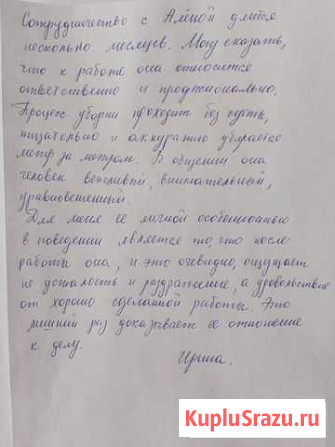 Сотрудничество с Алёной длится
несколько месяцев. Могу сказать,
что к работе она относится
ответственно и профессионально.
Процесс уборки проходит без суеты,
тщательно и аккуратно убирается
метр за метром. В общении она
человек вежливый, внимательный,
уравновешенный.
Для меня её личной особенностью
в поведении является то, что после
работы она, и это очевидно, ощущает
не усталость и раздражение, а удовольствие
от хорошо сделанной работы. Это
лишний раз доказывает её отношение
к делу.
Ирина.
KupluSrazu.ru